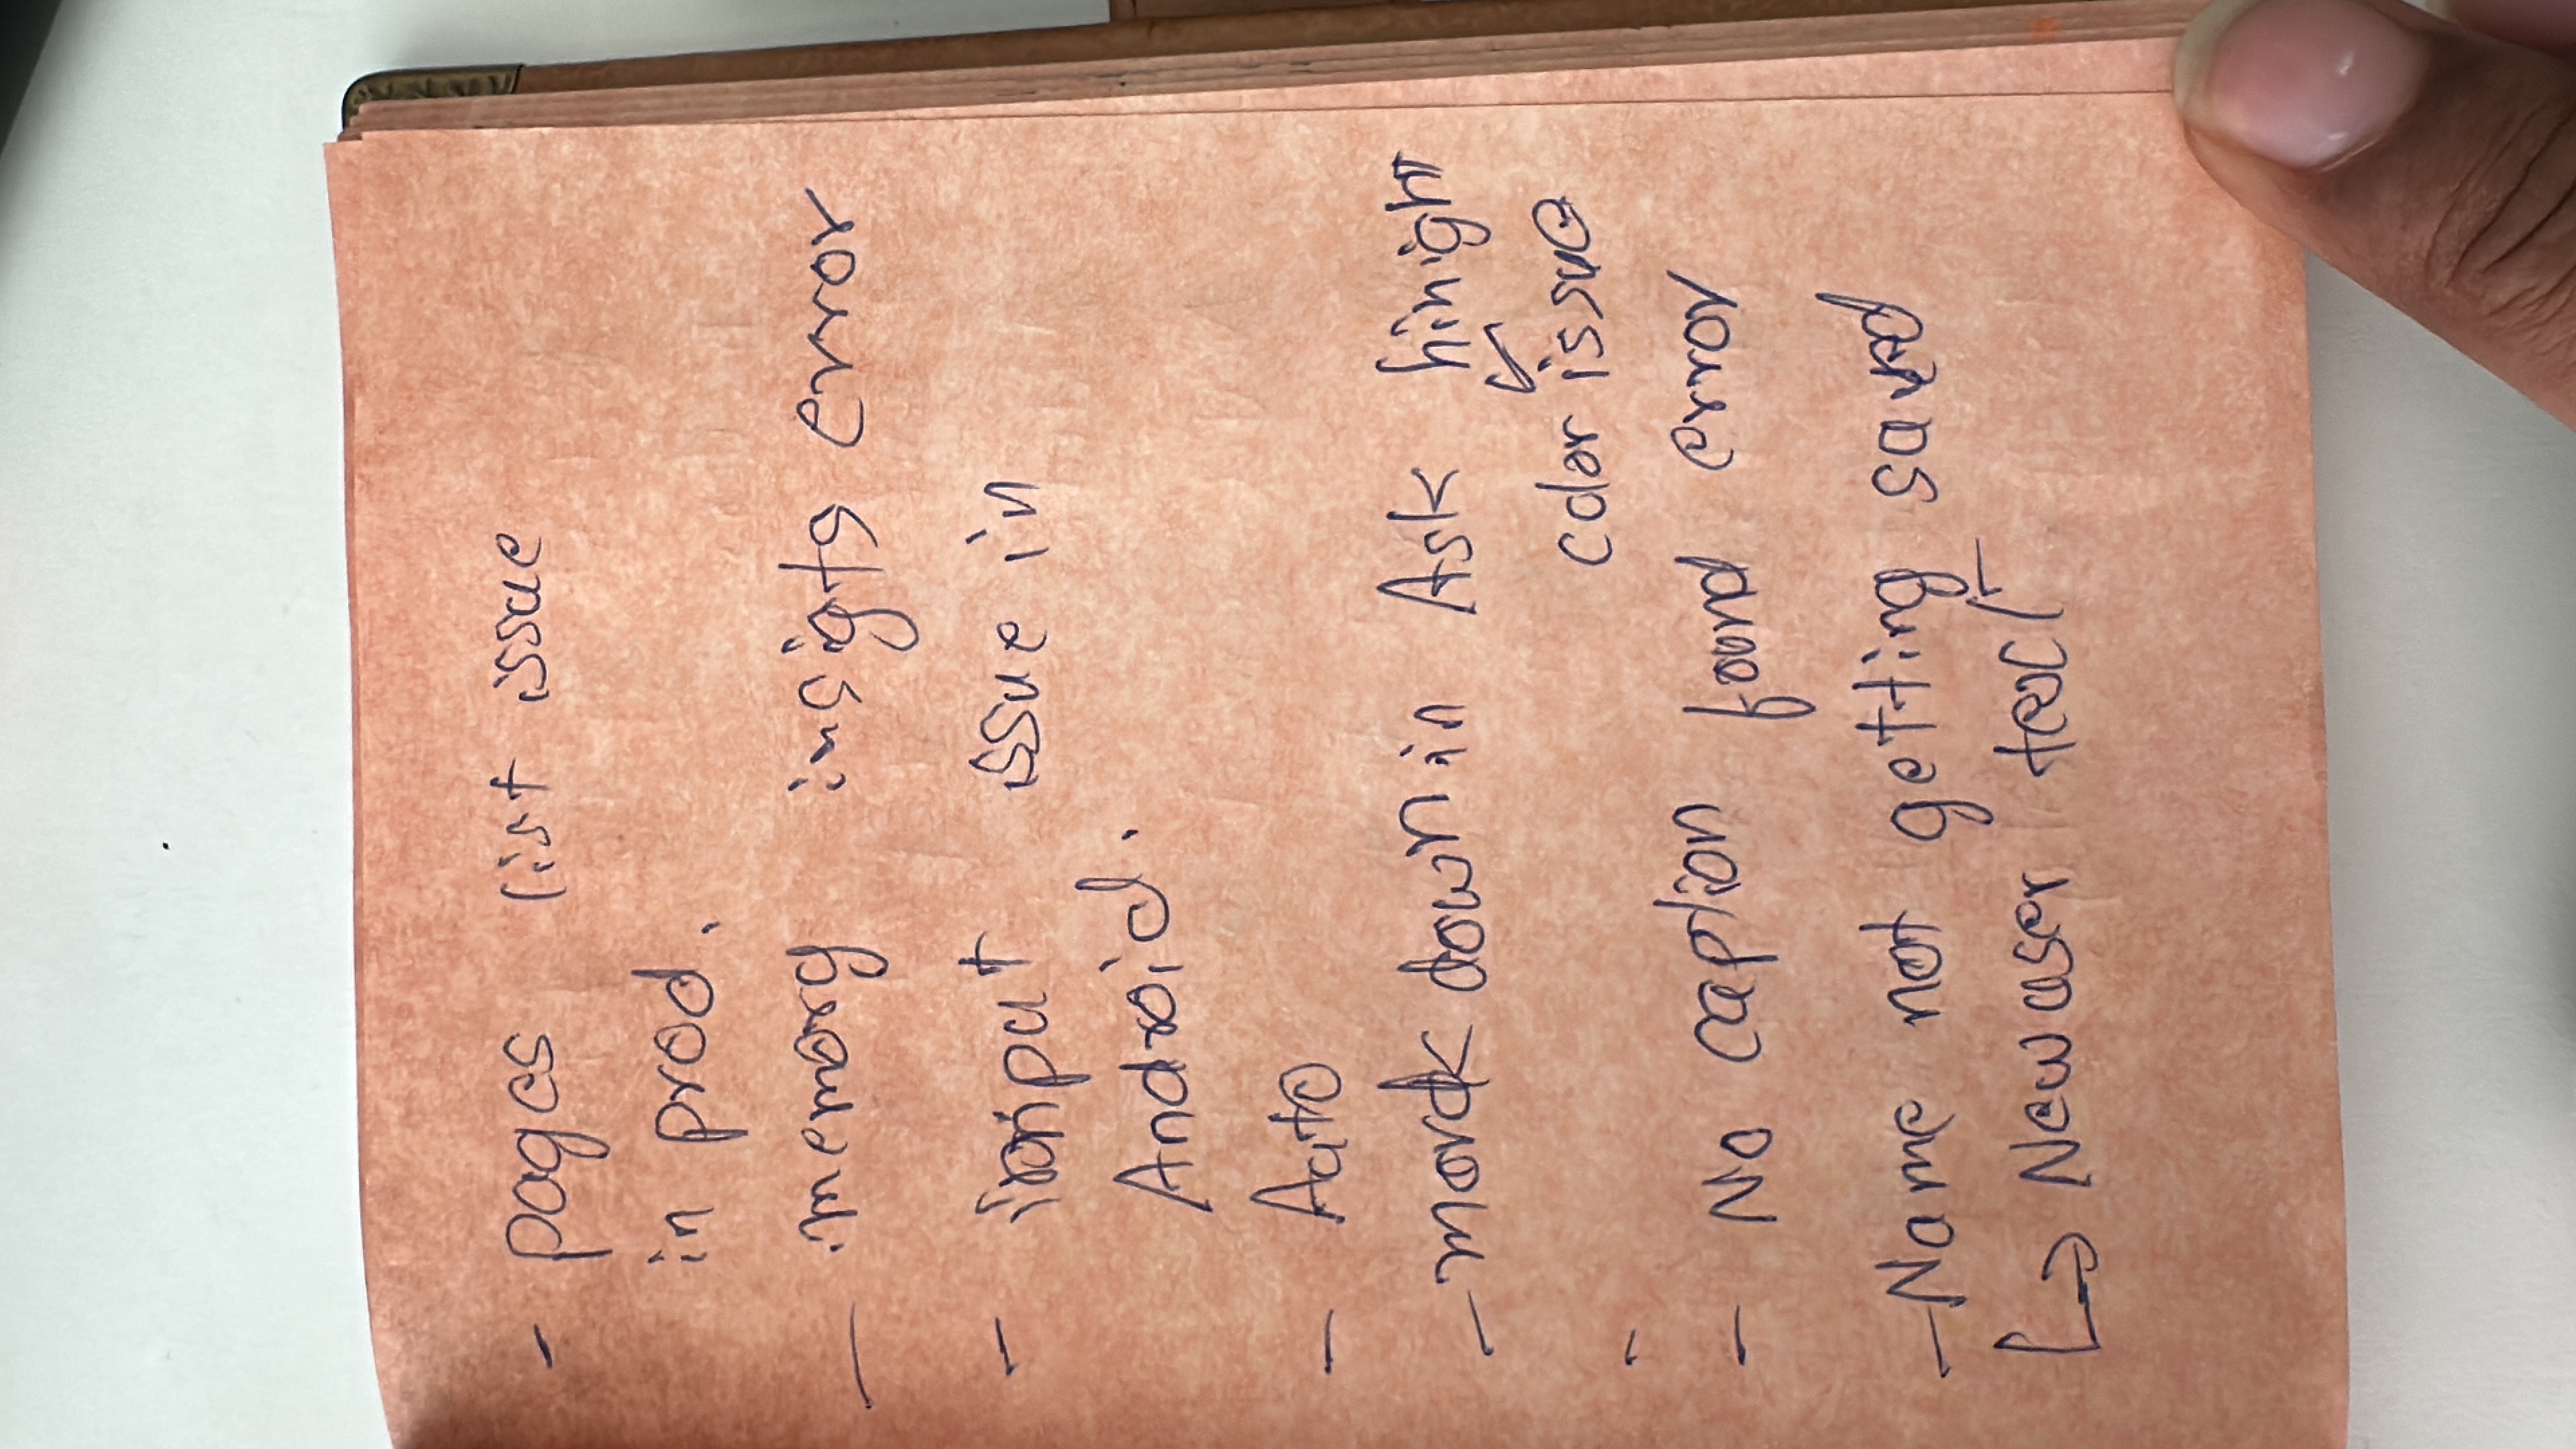 - pages list issue
in prod.
- memory insigts error
- input issue in
Android.
- Auto
- markdown in Ask hinight
color issue
- No caption found error
- Name not getting saved
↳ New user